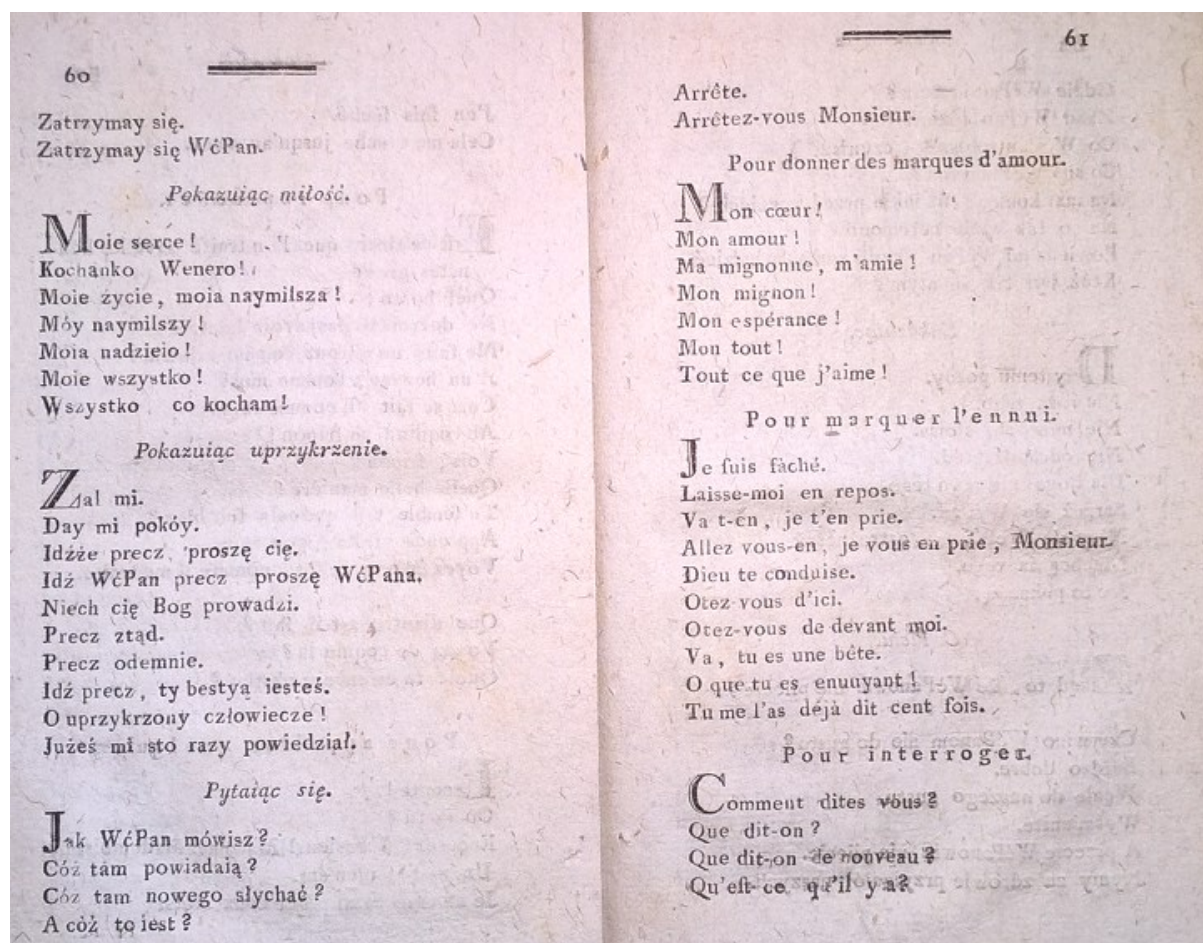 60
Zatrzymay się.
Zatrzymay się WćPan.
Pokazuiąc miłość.
Moie serce !
Kochanko Wenero !
Moie życie , moia naymilsza !
Móy naymilszy !
Moia nadzieio !
Moie wszystko !
Wszystko co kocham !
Pokazuiąc uprzykrzenie.
Żal mi.
Day mi pokóy.
Idźże precz , proszę cię.
Idź WćPan precz proszę WćPana.
Niech cię Bog prowadzi.
Precz ztąd.
Precz odemnie.
Idź precz , ty bestyą iesteś.
O uprzykrzony człowiecze !
Jużeś mi sto razy powiedział.
Pytaiąc się.
Jak WćPan mówisz ?
Cóż tam powiadaią ?
Cóż tam nowego słychać ?
A còż to iest ?
61
Arrête.
Arrêtez-vous Monsieur.
Pour donner des marques d'amour.
Mon cœur !
Mon amour !
Ma mignonne , m'amie !
Mon mignon !
Mon espérance !
Mon tout !
Tout ce que j'aime !
Pour marquer l'ennui.
Je ſuis fàché.
Laisse-moi en repos.
Va t-en , je t'en prie.
Allez vous-en , je vous en prie , Monsieur.
Dieu te conduise.
Otez-vous d'ici.
Otez-vous de devant moi.
Va , tu es une bête.
O que tu es enuuyant !
Tu me l'as déjà dit cent fois.
Pour interroger.
Comment dites vous ?
Que dit-on ?
Que dit-on de nouveau ?
Qu'eſt-ce qu'il y a ?